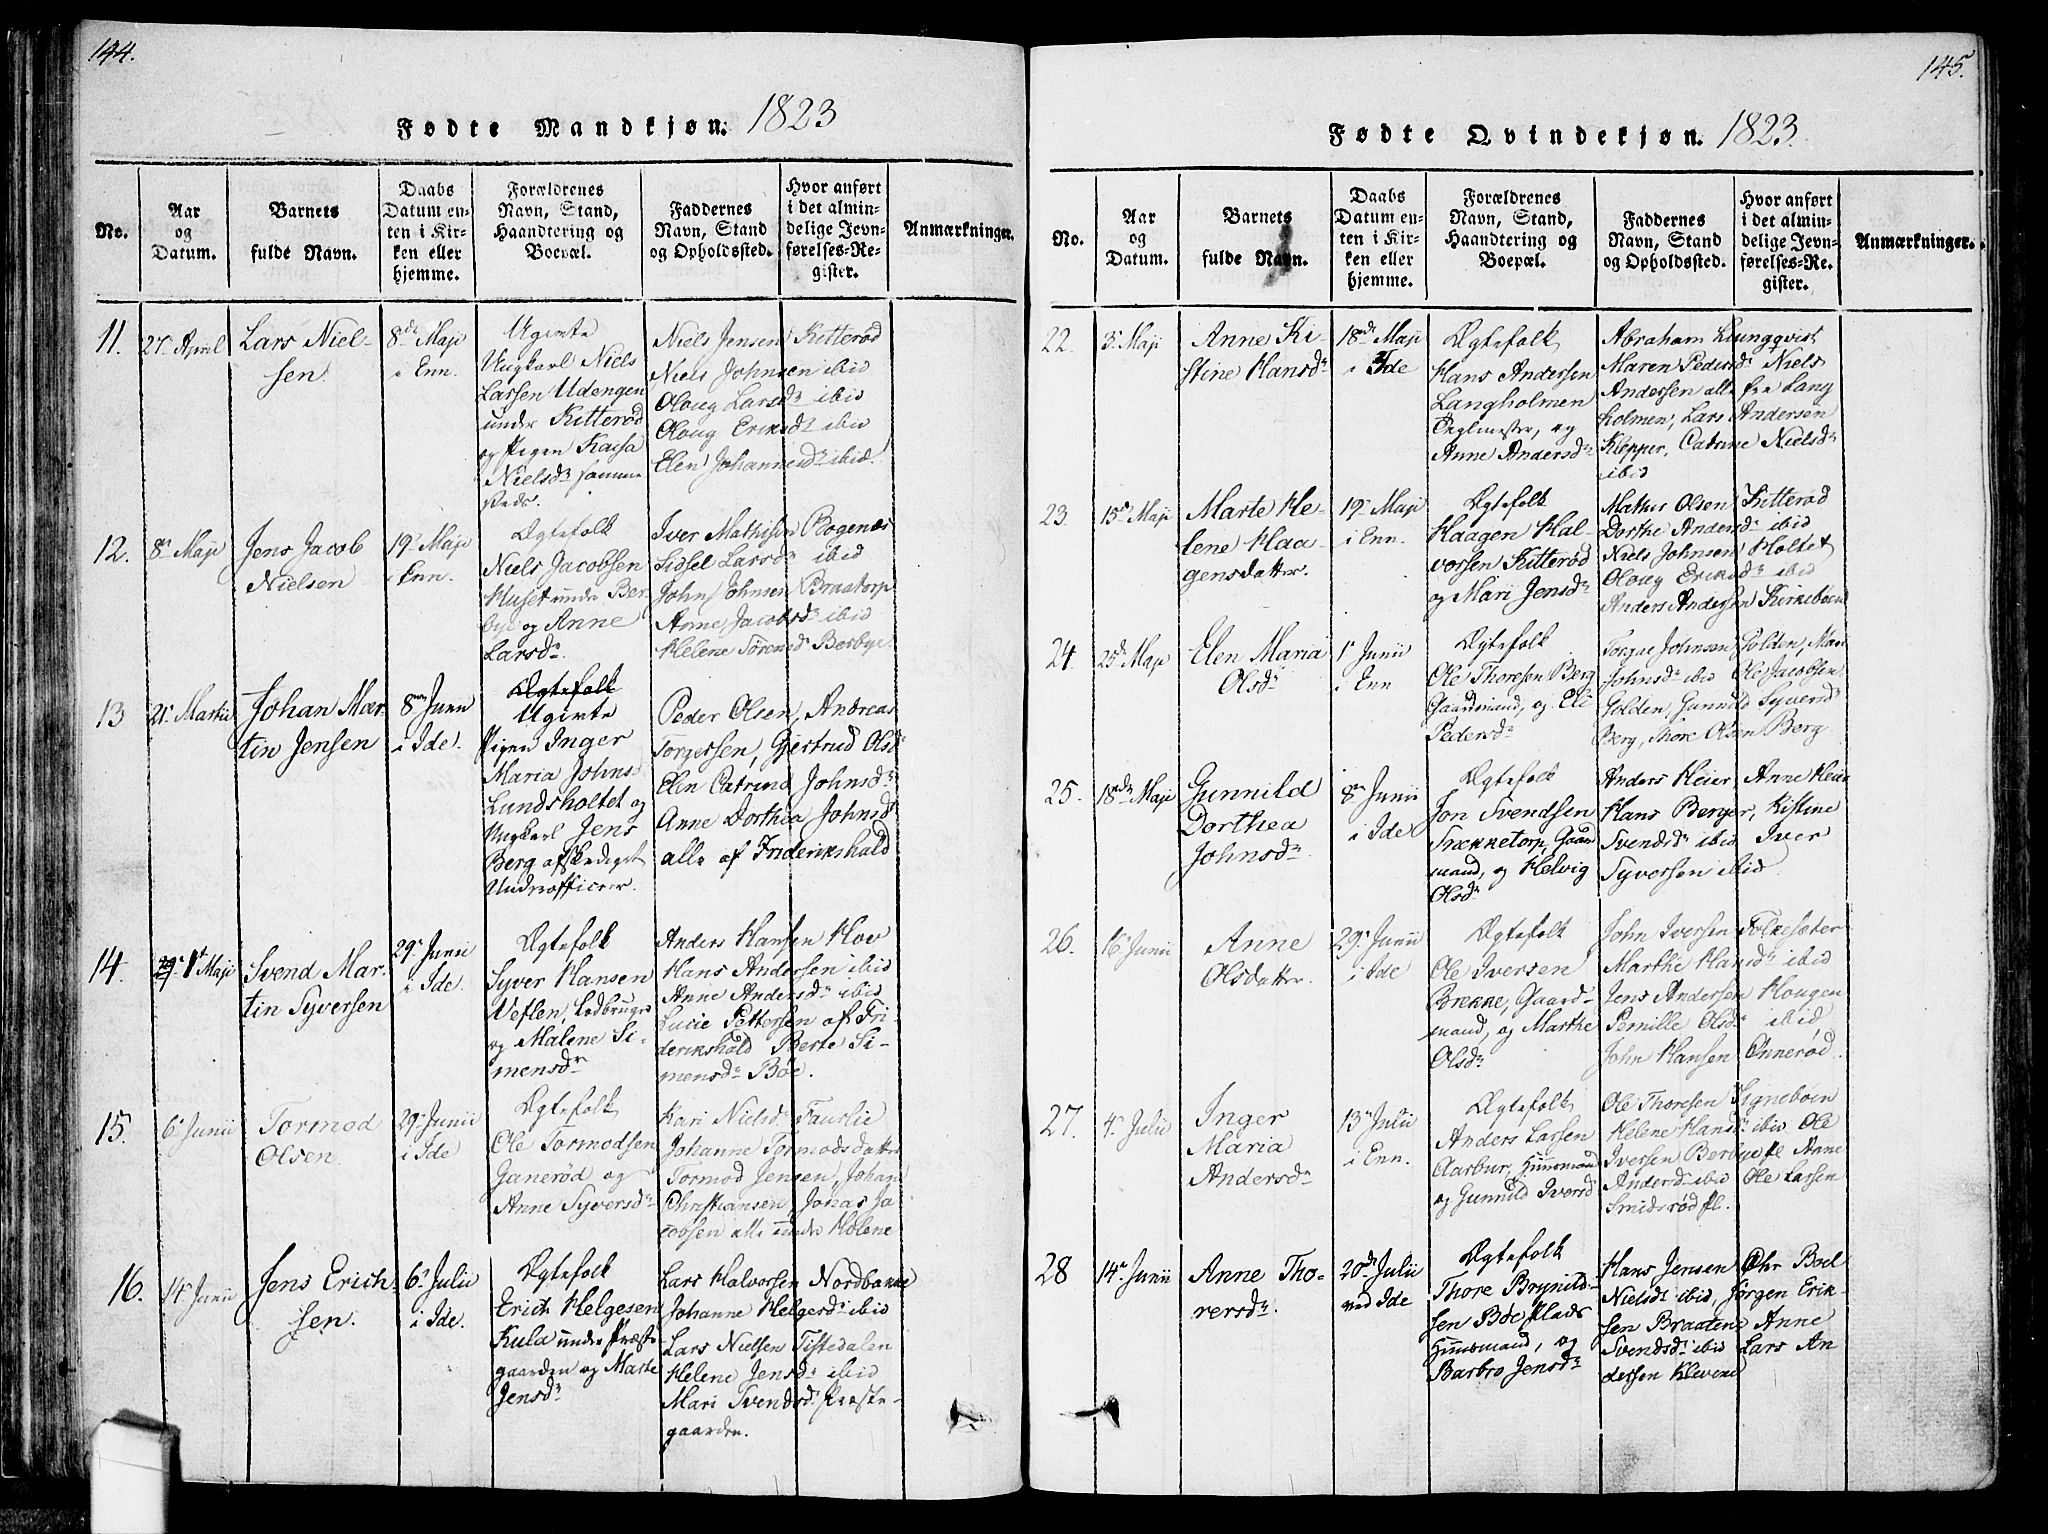 144.
Fødte Mandkjøn: 1823
No.
Aar
og
Datum.
Barnets
fulde Navn.
Daabs
Datum en-
ten i Kir-
ken eller
hjemme.
Forældrenes
Navn, Stand,
Haandtering og
Boepæl.
Faddernes
Navn, Stand
og Opholdssted.
Hvor anført
i det almin-
delige Jevn-
førelses-Re-
gister.
Anmærkninger.
11.
27. April
Lars Niel-
sen
8de Maji
i Enn.
Ugivte
Ungkarl Niels
Larsen Udengen
under Kitterød
og Pigen Kaisa
Nielsdr samme
steds.
Niels Jensen Kitterød
Niels Johnsen ibid
Oloug Larsdr ibid
Oloug Eriksdr ibid
Elen Johannesdr ibid.
12.
8de Maji
Jens Jacob
Nielsen
19. Maji
i Enn.
Ægtefolk
Niels Jacobsen
Huset under Ber-
bye og Anne
Larsdr
Iver Mathisen Bogenæs
Sidsel Larsdr ibid
John Johnsen Braatorp
Anne Jacobsdr ibid
Helene Sørensdr Berbye
13
21. Martii
Johan Mar-
tin Jensen
8de Junii
i Ide.
Ægtefolk
Ugivte
Pigen Inger
Maria Johns-
Lundsholtet og
Ungkarl Jens
Berg afskediget
Underofficeer.
Peder Olsen, Andreas
Torgersen, Giertrud Olsdr
Elen Catrina Johnsdr
Anne Dorthea Johnsdr
alle af Friderikshald
14.
1st Maji
Svend Mar-
tin Syversen
29. Junii
i Ide.
Ægtefolk
Syver Hansen
Veflen, Lodbruger
og Malene Si-
mensdr
Anders Hansen Hov
Hans Andersen ibid
Anne Andersdr ibid
Lucie Pettersen af Fri-
derikshald Berte Si-
mensdr Bøe.
15.
6. Junii
Tormod
Olsen
29. Junii
i Ide
Ægtefolk
Ole Tormodsen
Ganerød og
Anne Syversdr
Kari Nielsdr Fauslie
Johanne Tormodsdatter
Tormod Jensen, Johan
Christiansen, Jonas Ja-
cobsen alle under Holene
16.
14. Junii
Jens Erich-
sen.
6. Julii
i Ide.
Ægtefolk
Erich Helgesen
Kula under Præste-
gaarden og Marte
Jensdr
Lars Halvorsen Nordbakke
Johanne Helgesdr ibid
Lars Nielsen Tistedalen
Helene Jensdr ibid
Mari Svendsdr Præste-
gaarden.
145.
Fødte Qvindekjøn. 1823.
No.
Aar
og
Datum.
Barnets
fulde Navn.
Daabs
Datum en-
ten i Kir-
ken eller
hjemme.
Forældrenes
Navn, Stand,
Haandtering og
Boepæl.
Faddernes
Navn, Stand
og Opholdssted.
Hvor anført
i det almin-
delige Jevn-
førelses-Re-
gister.
Anmærkninger.
22.
3. Maji
Anne Ki-
stine Hansdr
18de Maji
i Ide
Ægtefolk
Hans Andersen
Langholmen
Teglmester, og
Anne Andersdr
Abraham Liungqvist
Maren Pedersdr Niels
Andersen alle fra Lang
holmen, Lars Andersen
Klepper, Catrine Nielsdr
ibid
23.
15de Maji
Marte He-
lene Haa-
gensdatter.
19. Maji
i Enn.
Ægtefolk
Haagen Hal-
vorsen Kitterød
og Mari Jensdr
Mathis Olsen Kitterød
Dorthe Andersdr ibid
Niels Johnsen Holtet
Oloug Eriksdr ibid
Anders Andersen Kirkebøen
24
25. Maji
Elen Maria
Olsdr
1. Junii
i Enn
Ægtefolk
Ole Thoresen Berg
Gaardmand, og Eli
Pedersdr
Torger Johnsen Golden, Mari
Johnsdr ibid Ole Jacobsen
Golden, Gunnild Syversdr
Berg, Thore Olsen Berg
25.
18de Maji
Gunnild
Dorthea
Johnsdr
8de Junii
i Ide
Ægtefolk
Jon Svendsen
Trækketorp, Gaard
mand, og Helvig
Olsdr
Anders Heier, Anne Heier
Hans Berger, Kistine
Svendsdr ibid Iver
Syversen ibid
26.
16. Junii
Anne
Olsdatter.
29. Junii
i Ide
Ægtefolk
Ole Iversen
Brekke, Gaard-
mand, og Marthe
Olsdr
John Iversen Folkesæter
Marthe Hansdr ibid
Jens Andersen Hougen
Pernille Olsdr ibid
John Hansen Ønnerød
27.
4. Julii
Inger
Maria
Andersdr
13. Julii
i Enn.
Ægtefolk
Anders Larsen
Aarbur, Huusmand
og Gunnild Iversdr
Ole Thoresen Signebøen
Helene Hansdr ibid Ole
Iversen Berbye pl Anne
Andersdr ibid Ole Larsen
Smidsrød pl.
28
14de Junii
Anne Tho-
rersdr.
20de Julii
ved Ide
Ægtefolk
Thore Brynild-
sen Bøe Plads
Huusmand, og
Barbro Jensdr
Hans Jensen Øhr Boel
Nielsdr ibid, Jørgen Erik-
sen Braaten, Anne
Svendsdr ibid Lars An
dersen Klevene